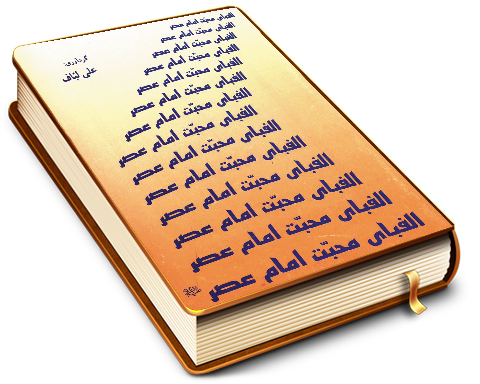 الفبای محبّت امام عصر
الفبای محبّت امام عصر
الفبای محبّت امام عصر
الفبای محبّت امام عصر
الفبای محبّت امام عصر
الفبای محبّت امام عصر
الفبای محبّت امام عصر
الفبای محبّت امام عصر
الفبای محبّت امام عصر
الفبای محبّت امام عصر
الفبای محبّت امام عصر
الفبای محبّت امام عصر
الفبای محبّت امام عصر
الفبای محبّت امام عصر
گردآوری:
علی لبّاف